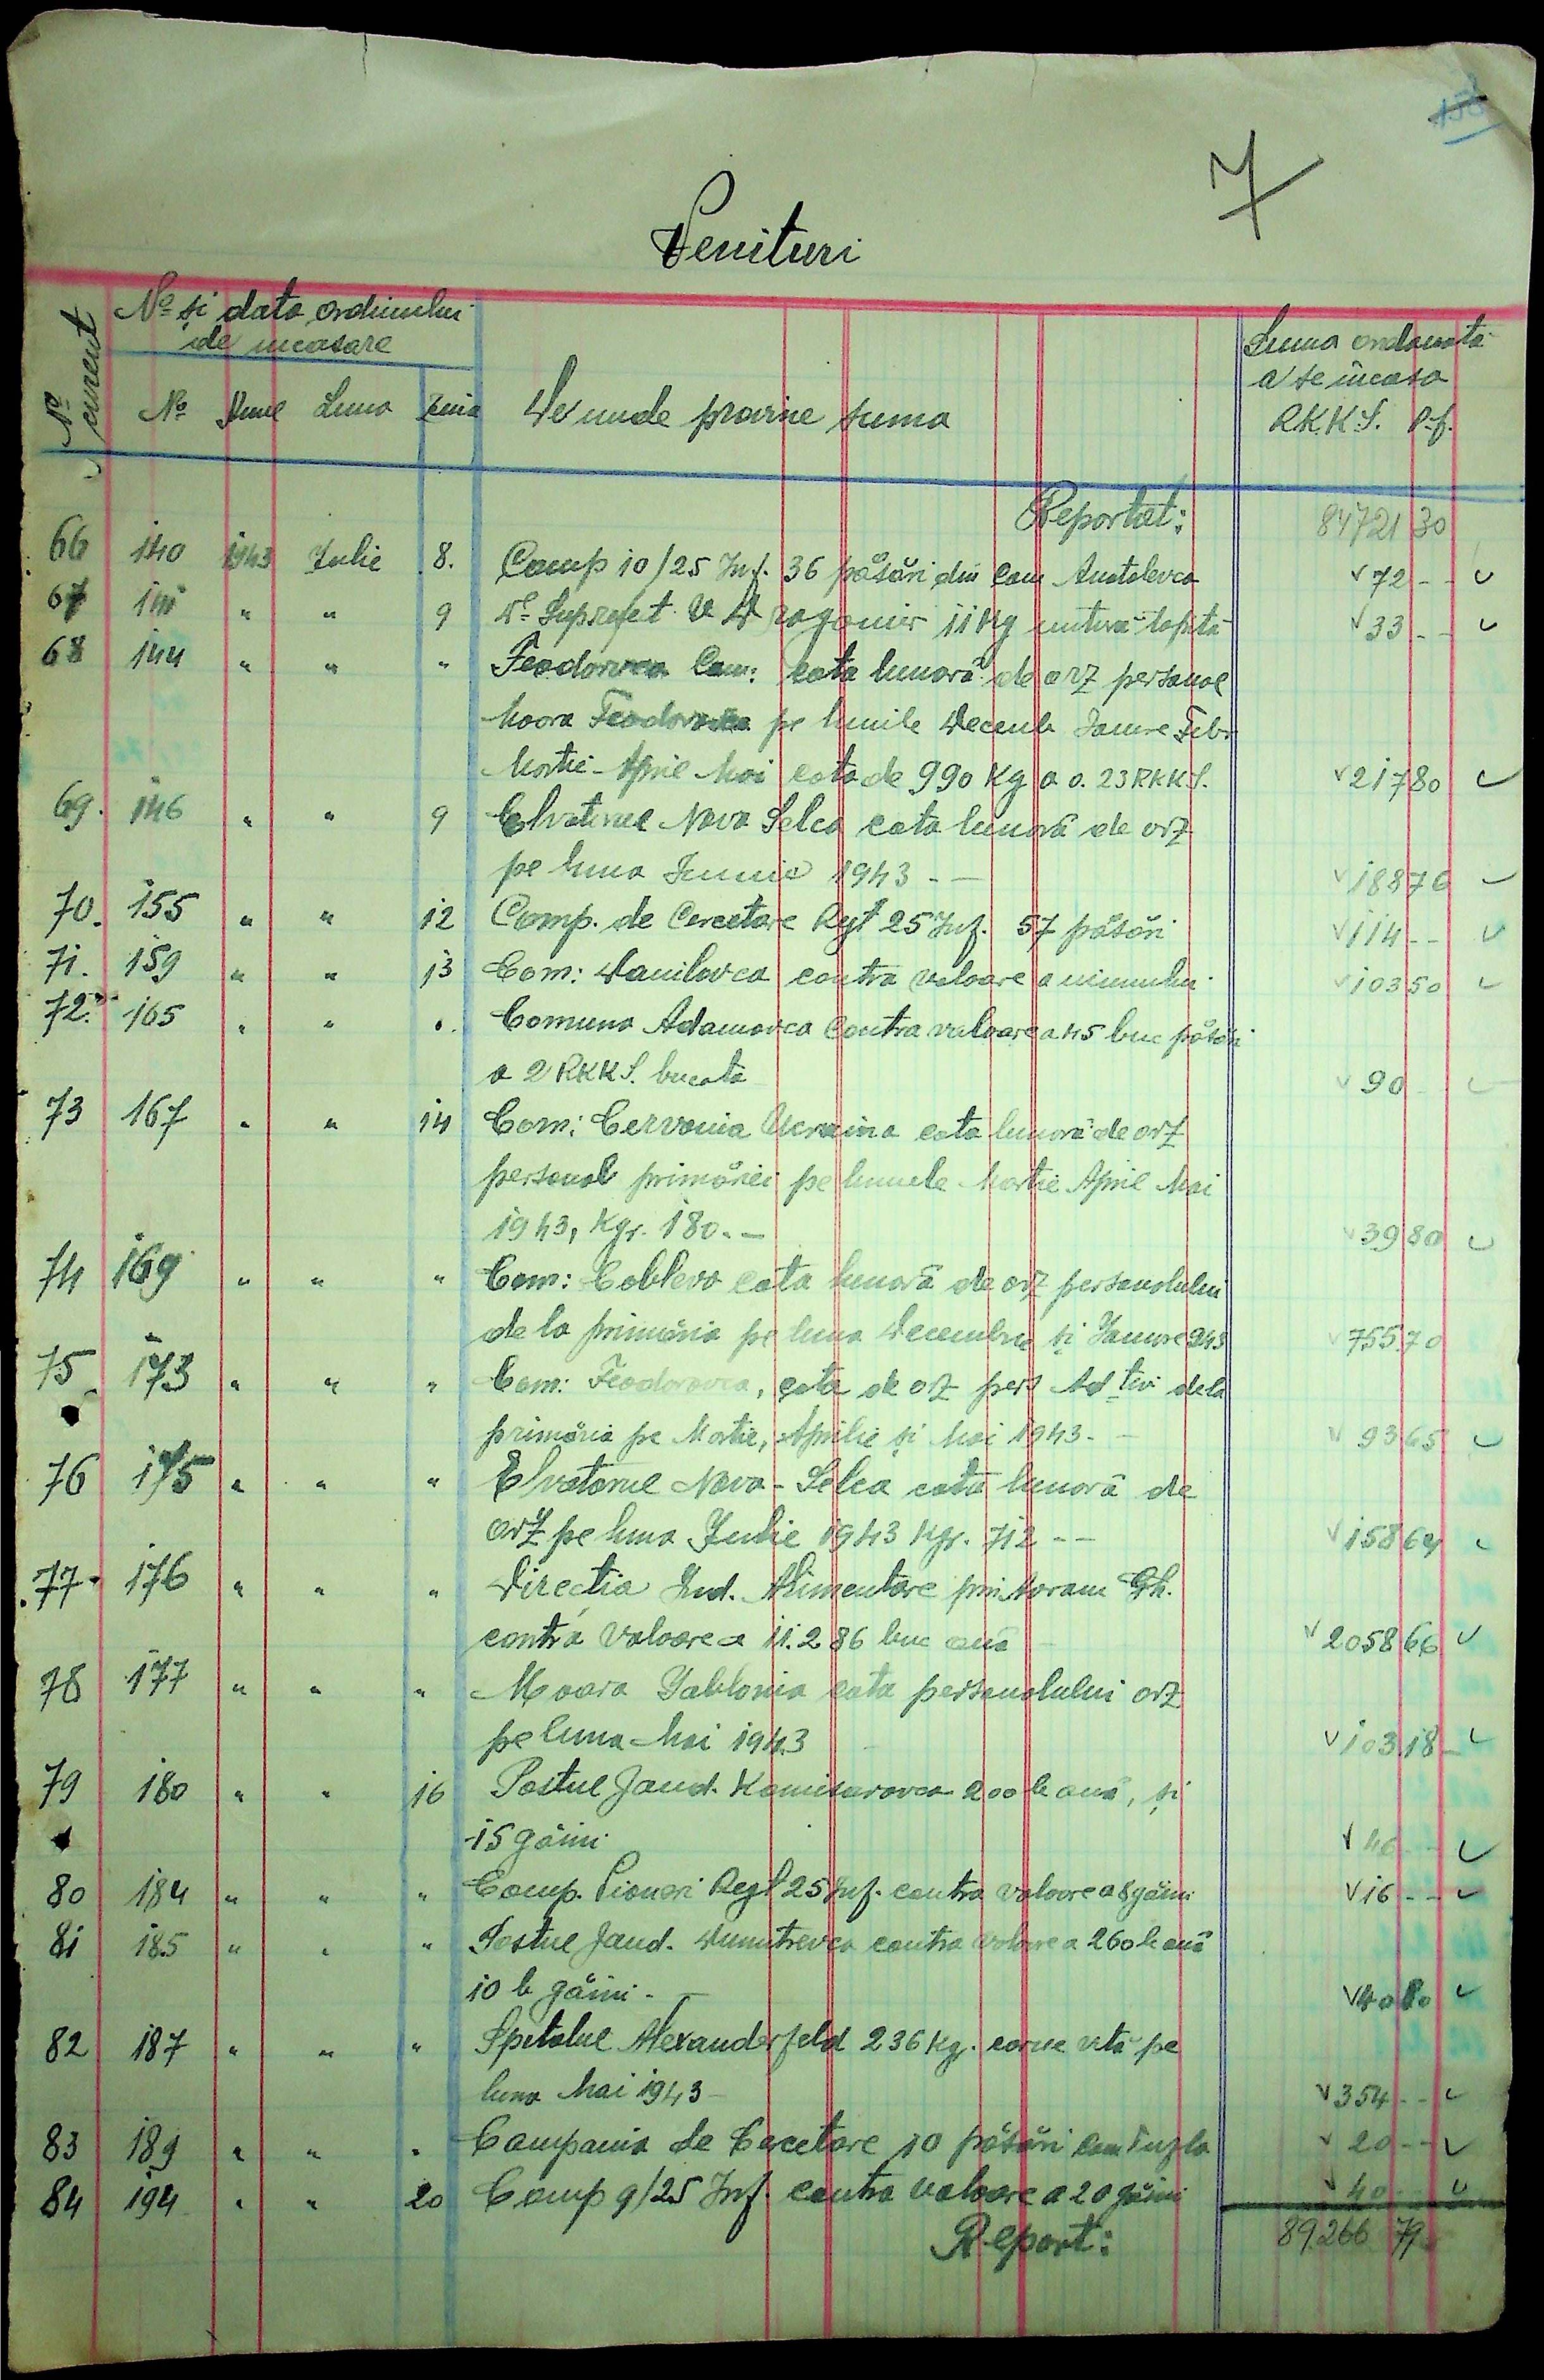 7
Venituri
No curent
No și data ordinului de incasare
No Anul Luna Ziua
De unde provine suma
Suma ordonată a se incasa
RKKS. Pf.
Reportat: 84721 30
66 140 1943 Iulie 8. Comp 10/25 Inf. 36 păsări din com Anatolevca 72 --
67 141 " " 9 Dl Suprefect V Dragomir 11 Kg untură topită 33 --
68 144 " " " Feodorovca Com: cota lunară de orz personal
Moara Feodorovca pe lunile Decemb Januare Febr
Martie - April Mai cota de 990 Kg a o. 23 RKKS. 217 80
69. 146 " " 9 Elvatorul Nova Selca cota lunară de orz
pe luna Iunie 1943 -- 188 76
70. 155 " " 12 Comp. de Cercetare Regt 25 Inf. 57 păsări 114 --
71. 159 " " 13 Com: Danilovca contra valoare a
103 50
72. 165 " " " Comuna Adamovca Contra valoare a 45 buc păsări
a 2 RKKS. bucata 90
73 167 " " 14 Com: Cervonia Ucraina cota lunară de orz
personal primăriei pe lunile Martie April Mai
1943, Kgr. 180. - 39 80
74 169 " " " Com: Coblevo cota lunară de orz personalului
de la primăria pe luna Decembrie și Januare 943 755 70
75 173 " " " Com: Feodorovca, cota de orz pers Ad tiv dela
primăria pe Martie, Aprilie și Mai 1943 - 93 65
76 175 " " " Elvatorul Nova - Selca cota lunară de
orz pe luna Iulie 1943 Kgr. 712 -- 158 64
77 176 " " " Directia Ind. Alimentare prin Gh.
contra valoare a 11.286 buc ouă 2058 66
78 177 " " " Moara Iablonia cota personalului orz
pe luna Mai 1943 103 18
79 180 " " 16 Postul Jand. Komisarovca 200 b ouă, și
15 găini 46 --
80 184 " " " Comp. Pionari Regt 25 Inf. contra valoare a 8 găini 16 --
81 185 " " " Postul Jand. Dumitrevca contra valoare a 260 b ouă
10 b găini - 40 80
82 187 " " " Spitalul Alexanderfeld 236 Kg. carne vită pe
luna Mai 1943 - 354 --
83 189 " " " Compania de Cercetare 10 păsări com Tuzla 20 --
84 194 " " 20 Comp 9/25 Inf. contra valoare a 20 găini 40 --
Report: 89266 79